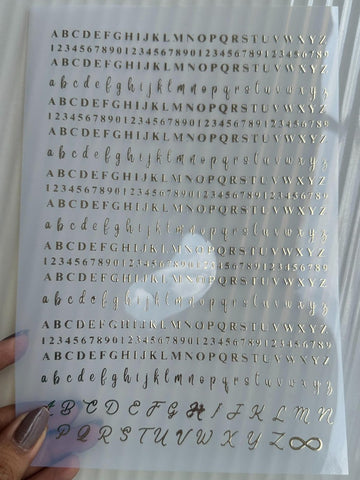 ABCDEFGHIJKLMNOPQRSTUVWXYZ
123456789012345678901234567890123456789
ABCDEFGHIJKLMNOPQRSTUVWXYZ
abcdefghijklmnopqrstuvwxyz
ABCDEFGHIJKLMNOPQRSTUVWXYZ
123456789012345678901234567890123456789
ABCDEFGHIJKLMNOPQRSTUVWXYZ
abcdefghijklmnopqrstuvwxyz
ABCDEFGHIJKLMNOPQRSTUVWXYZ
123456789012345678901234567890123456789
ABCDEFGHIJKLMNOPQRSTUVWXYZ
abcdefghijklmnopqrstuvwxyz
ABCDEFGHIJKLMNOPQRSTUVWXYZ
123456789012345678901234567890123456789
ABCDEFGHIJKLMNOPQRSTUVWXYZ
abcdefghijklmnopqrstuvwxyz
ABCDEFGHIJKLMNOPQRSTUVWXYZ
123456789012345678901234567890123456789
ABCDEFGHIJKLMNOPQRSTUVWXYZ
abcdefghijklmnopqrstuvwxyz
A B C D E F G H I J K L M N
P Q R S T U V W X Y Z ∞